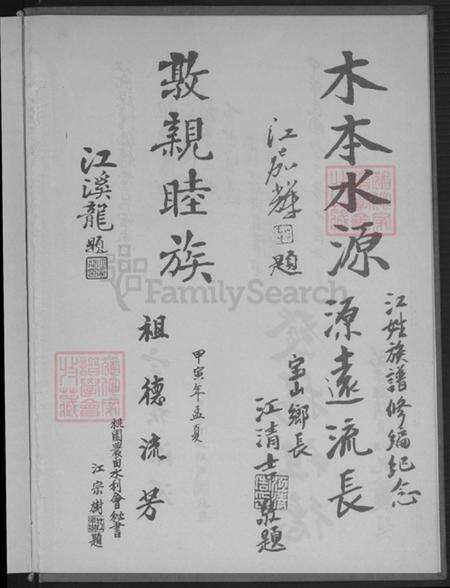 江姓族譜修編紀念
木本水源
源遠流長
宝山鄉長
江清吉敬題
題
敦親睦族
江溪龍題
祖德流芳
甲寅年孟夏
桃園農田水利會秘書
江宗樹題
FamilySearch